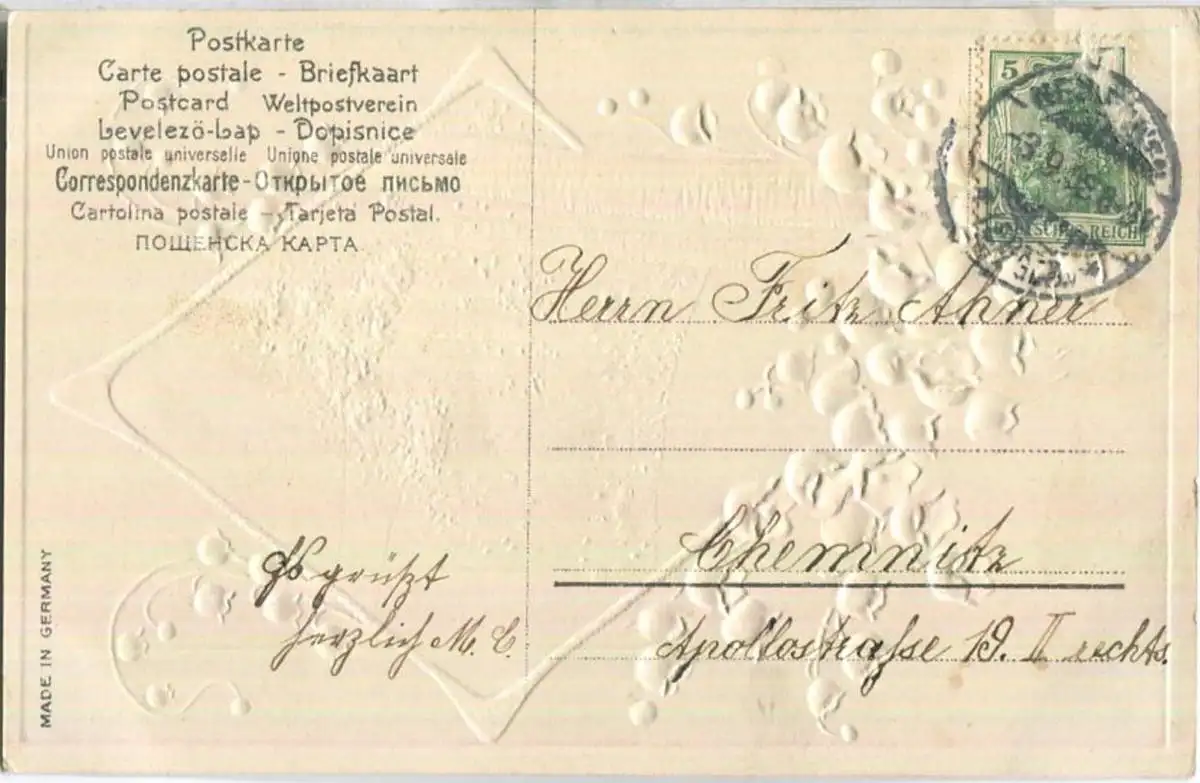 Postkarte
Carte postale - Briefkaart
Postcard Weltpostverein
Levelezö-Lap - Dopisnice
Union postale universelle Unione postale universale
Correspondenzkarte - Открытое письмо
Cartolina postale - Tarjeta Postal.
ПОЩЕНСКА КАРТА
5
DEUTSCHES REICH
Herrn Fritz Ahner
Chemnitz
Apollostraße 19. II rechts.
Es grüßt
herzlich M. C.
MADE IN GERMANY